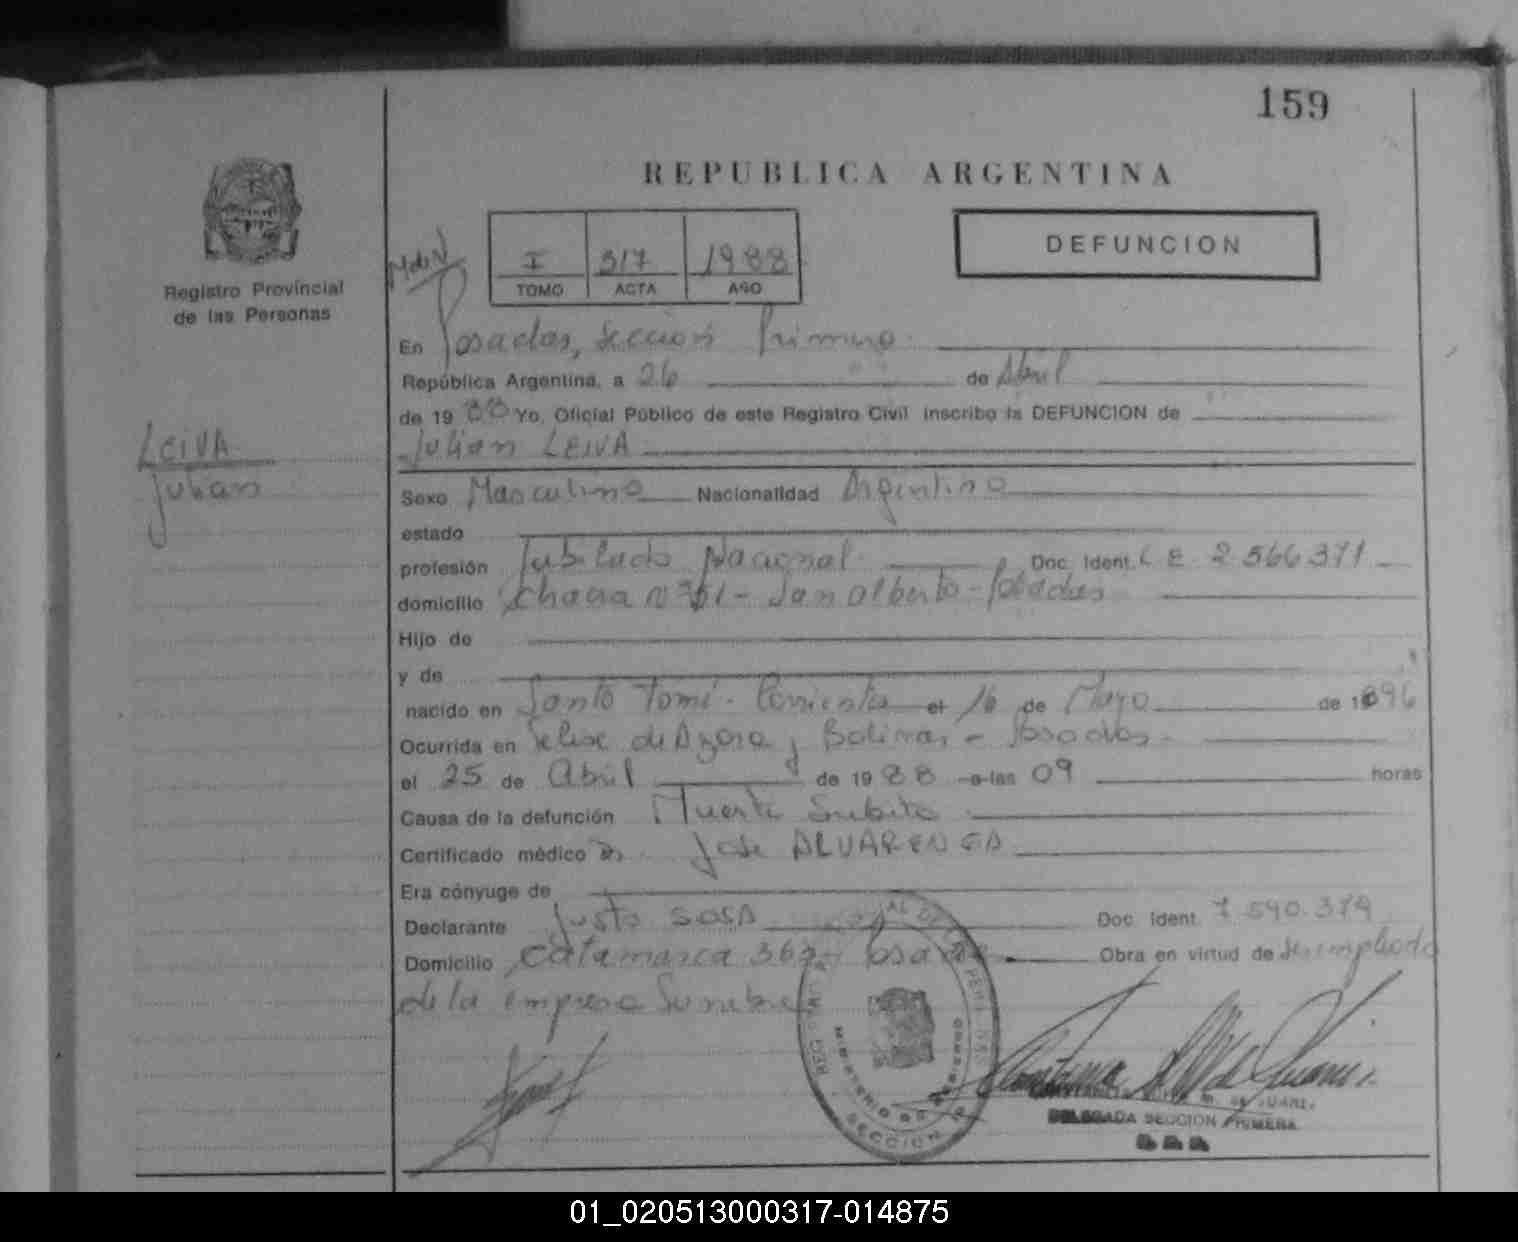 159
REPUBLICA ARGENTINA
Registro Provincial
de las Personas
I 317 1988
TOMO ACTA AÑO
DEFUNCION
En Posadas, Sección Primera
República Argentina, a 26 de Abril
de 1988 Yo, Oficial Público de este Registro Civil inscribo la DEFUNCION de
Julian LEIVA
LEIVA
Julian
Sexo Masculino Nacionalidad Argentino
estado
profesión Jubilado Nacional Doc. Ident. L E 2 566 371
domicilio Chacra San Alberto - Posadas
Hijo de
y de
nacido en Santo Tomé - Corrientes el 16 de Mayo de 1896
Ocurrida en Felix de Azara y Bolivar - Posadas
el 25 de Abril de 1988 a las 09 horas
Causa de la defunción Muerte Subita
Certificado médico José ALVARENGA
Era cónyuge de
Declarante Justo SOSA Doc. Ident. 7.590.379
Domicilio Catamarca Posadas Obra en virtud de Ser empleado
de la empresa funebre
MINISTERIO DE GOBIERNO
SECCION
DELEGADA SECCION PRIMERA
01_020513000317-014875